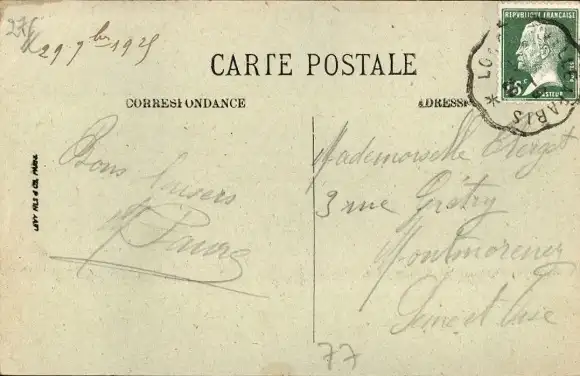 276
29 7bre 1925
CARTE POSTALE
CORRESPONDANCE
ADRESSE
RÉPUBLIQUE FRANÇAISE
15c
PASTEUR
PARIS
LEVY FILS & CIE, PARIS
Bons baisers
Mademoiselle
3 rue Grétry
Montmorency
Seine et Oise
77